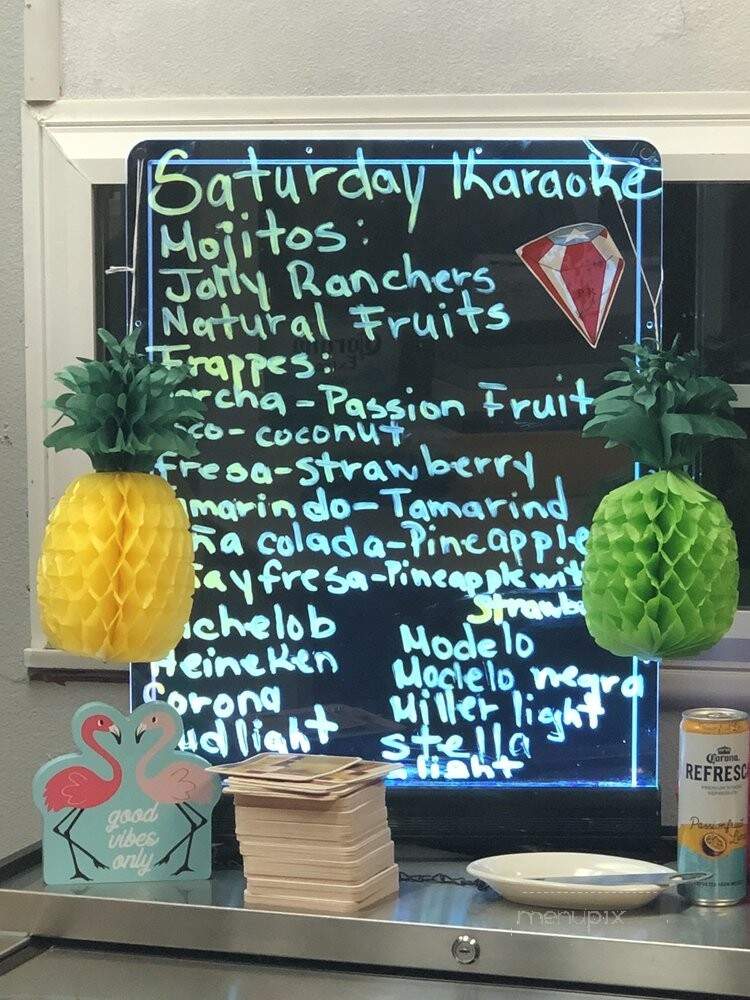 Saturday Karaoke
Mojitos:
Jolly Ranchers
Natural Fruits
Frappes:
archa-Passion Fruit
oco-coconut
fresa-strawberry
amarindo-Tamarind
ña colada-Pineapple
ayfresa-Pineapple with
Strawbe
ichelob
Heineken
Corona
udlight
Modelo
Modelo negra
Miller light
stella
light
good
vibes
only
Corona
REFRESC
Passionfruit
menupix